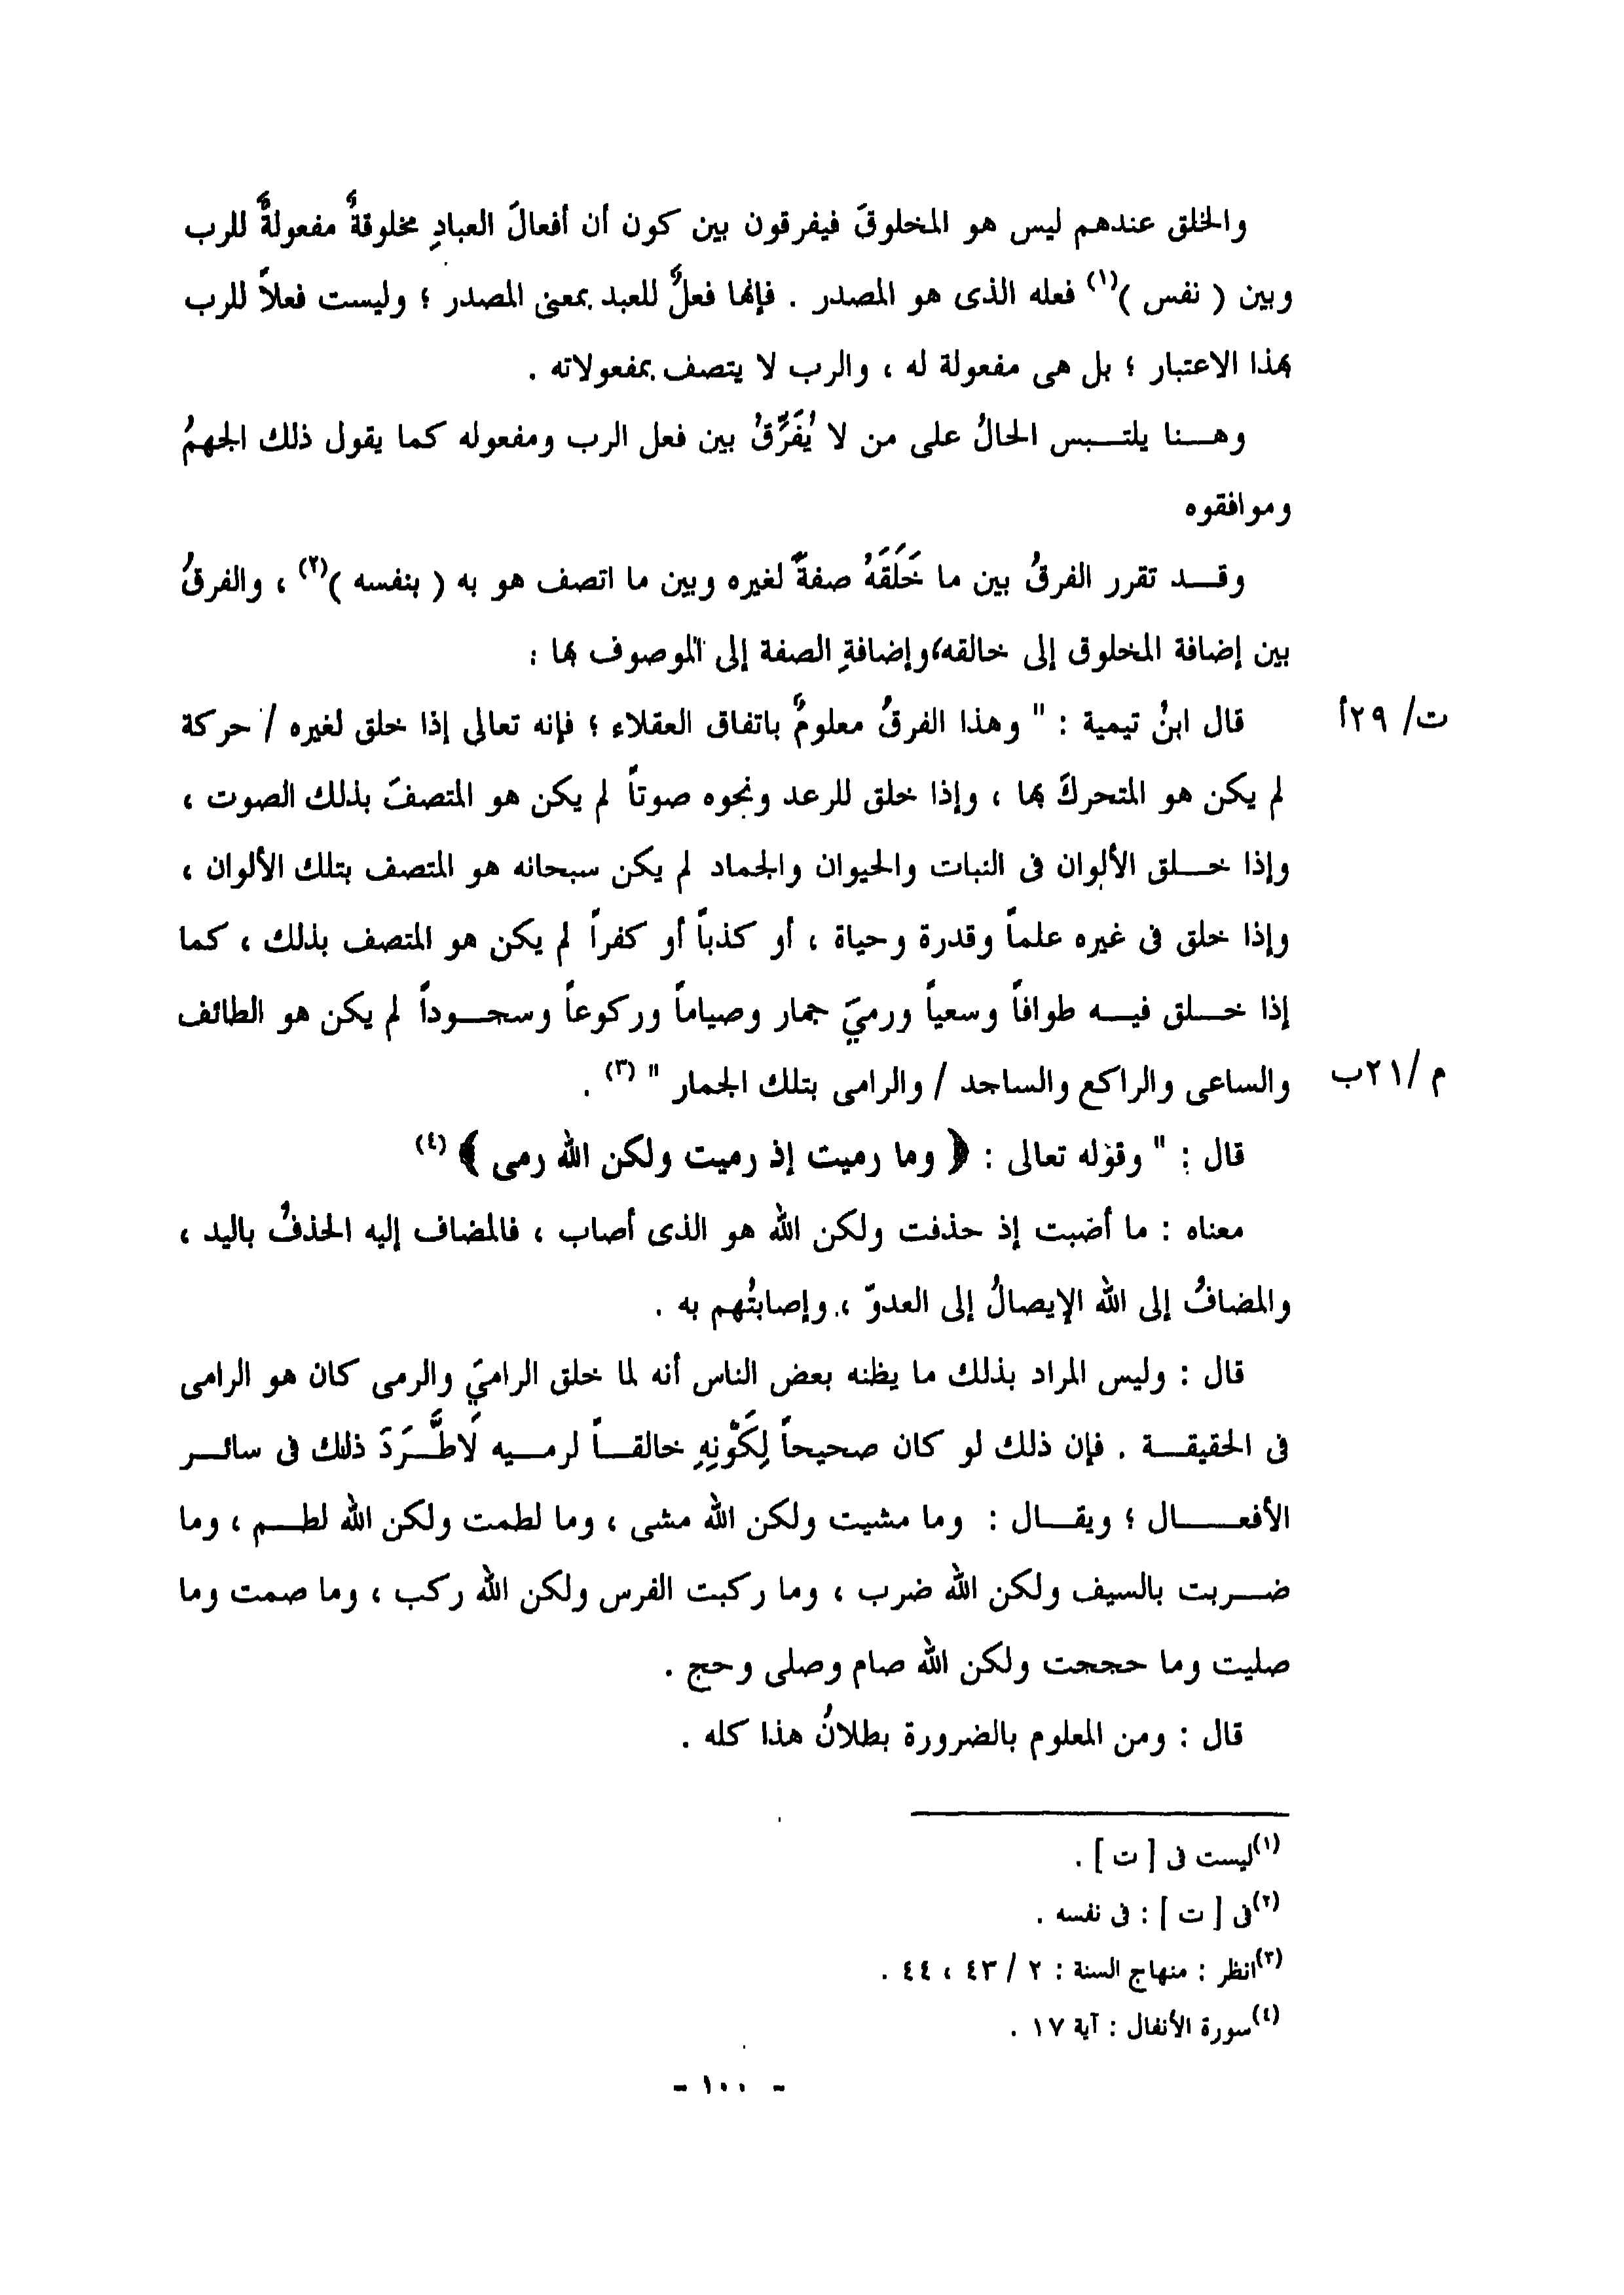 والخلق عندهم ليس هو المخلوقَ فيفرقون بين كون أن أفعالَ العبادِ مخلوقةٌ مفعولةٌ للرب
وبين ( نفس )(١) فعله الذى هو المصدر . فإنها فعلٌ للعبد بمعنى المصدر ؛ وليست فعلاً للرب
بهذا الاعتبار ؛ بل هى مفعولة له ، والرب لا يتصف بمفعولاته .
وهـــنا يلتـــبس الحالُ على من لا يُفَرِّقُ بين فعل الرب ومفعوله كما يقول ذلك الجهمُ
وموافقوه
وقـــد تقرر الفرقُ بين ما خَلَقَهُ صفةً لغيره وبين ما اتصف هو به ( بنفسه )(٢) ، والفرقُ
بين إضافة المخلوق إلى خالقه،وإضافةِ الصفة إلى الموصوف بها :
قال ابنُ تيمية : " وهذا الفرقُ معلومٌ باتفاق العقلاء ؛ فإنه تعالى إذا خلق لغيره / حركة
ت/ ٢٩أ
لم يكن هو المتحركَ بها ، وإذا خلق للرعد ونحوه صوتاً لم يكن هو المتصفَ بذلك الصوت ،
وإذا خـــلق الألوان فى النبات والحيوان والجماد لم يكن سبحانه هو المتصف بتلك الألوان ،
وإذا خلق فى غيره علماً وقدرة وحياة ، أو كذباً أو كفراً لم يكن هو المتصف بذلك ، كما
إذا خـــلق فيـــه طوافاً وسعياً ورميَ جمار وصياماً وركوعاً وسجـــوداً لم يكن هو الطائف
والساعى والراكع والساجد / والرامى بتلك الجمار " (٣) .
م /٢١ب
قال : " وقوله تعالى : ﴿ وما رميت إذ رميت ولكن الله رمى ﴾ (٤)
معناه : ما أصبت إذ حذفت ولكن الله هو الذى أصاب ، فالمضاف إليه الحذفُ باليد ،
والمضافُ إلى الله الإيصالُ إلى العدوّ ، وإصابتُهم به .
قال : وليس المراد بذلك ما يظنه بعض الناس أنه لما خلق الراميَ والرمى كان هو الرامى
فى الحقيقـــة . فإن ذلك لو كان صحيحاً لِكَوْنِهِ خالقـــاً لرمـــيه لَاطَّـــرَدَ ذلك فى سائـــر
الأفعـــال ؛ ويقـــال : وما مشيت ولكن الله مشى ، وما لطمت ولكن الله لطـــم ، وما
ضـــربت بالسيف ولكن الله ضرب ، وما ركبت الفرس ولكن الله ركب ، وما صمت وما
صليت وما حججت ولكن الله صام وصلى وحج .
قال : ومن المعلوم بالضرورة بطلانُ هذا كله .
(١)ليست فى [ ت ] .
(٢)فى [ ت ] : فى نفسه .
(٣)انظر : منهاج السنة : ٢ / ٤٣ ، ٤٤ .
(٤)سورة الأنفال : آية ١٧ .
- ١٠٠ -